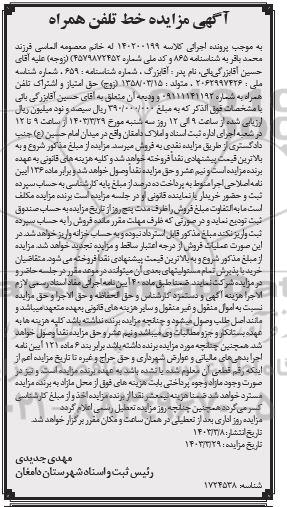 آگهی مزایده خط تلفن همراه
به موجب پرونده اجرائی کلاسه ۱۴۰۲۰۰۱۹۹ له خانم معصومه الماسی فرزند
محمد باقر به شناسنامه ۸۶۵ و کد ملی شماره ۴۵۷۹۸۷۲۴۵۲ (زوجه) علیه آقای
حسین آقابزرگی‌بائی، نام پدر : آقابزرگ ، شماره شناسنامه : ۶۵۹ ، شماره شناسه
ملی : ۲۰۶۲۹۹۷۴۲۶ ، متولد : ۱۳۵۸/۰۳/۱۵ (زوج) حق امتیاز و اشتراک تلفن
همراه به شماره ۰۹۱۱۱۱۴۱۱۹۲ و ودیعه آن متعلق به آقای حسین آقابزرگی بائی
با مشخصات فوق الذکر که به مبلغ ۳۹۰/۰۰۰/۰۰۰ ریال سیصد و نود میلیون ریال
ارزیابی شده از ساعت ۹ الی ۱۲ روز سه شنبه مورخ ۱۴۰۳/۳/۲۹ از ساعت ۹ تا ۱۲
در شعبه اجرای اداره ثبت اسناد و املاک دامغان واقع در میدان امام حسین (ع) جنب
دادگستری از طریق مزایده نقدی به فروش میرسد. مزایده از مبلغ مذکور شروع و به
بالاترین قیمت پیشنهادی نقداً فروخته خواهد شد و کلیه هزینه های قانونی به عهده
برنده مزایده است و نیم عشر و حق مزایده نقداً وصول خواهد شد و برابر ماده ۱۳۶ آیین
نامه اصلاحی اجرا منوط به پرداخت ده درصد از مبلغ پایه کارشناسی به حساب سپرده
ثبت و حضور خریدار یا نماینده قانونی او در جلسه مزایده است برنده مزایده مکلف
است مابه التفاوت مبلغ فروش را ظرف مدت پنج روز از تاریخ مزایده به حساب صندوق
ثبت تودیع نماید و در صورتی که ظرف مهلت مقرر مانده فروش را به حساب سپرده
ثبت واریز نکند مبلغ مذکور قابل استرداد نبوده و به حساب خزانه واریز خواهد شد در
این صورت عملیات فروش از درجه اعتبار ساقط و مزایده تجدید خواهد شد. مزایده
از مبلغ مذکور شروع و به بالاترین قیمت پیشنهادی نقداً فروخته می شود. متقاضیان
خرید با پذیرش تمام مسئولیتهای بعدی آن میتوانند در موعد مقرر در جلسه حاضر و
در مزایده شرکت نمایند ضمنا طبق ماده ۴۰ آیین نامه اجرای مفاد اسناد رسمی لازم
الاجرا هزینه آگهی و دستمزد کارشناس و حق الحفاظه و حق الاجرا و حق مزایده
نسبت به اموال منقول و غیر منقول و سایر هزینه های قانونی بعهده متعهد میباشد و
مانند اصل طلب وصول میشود و چنانچه مزایده برنده نداشته باشد کلیه هزینه ها به
عهده بستانکار و جزو مطالبات وی میباشد و نیم عشر و حق مزایده نقداً وصول خواهد
شد. همچنین چنانچه مورد مزایده برنده داشته باشد برابر بند ۶ ماده ۱۲۱ آیین نامه
اجرا بدهی های مالیاتی و عوارض شهرداری و حق حراج و غیره تا تاریخ مزایده اعم از
اینکه رقم قطعی آن معلوم شده یا نشده باشد به عهده برنده مزایده است و نیز در
صورت وجود مازاد وجوه پرداختی بابت هزینه های فوق از محل مازاد به برنده مزایده
مسترد خواهد شد ضمنا هزینه نیمعشر نقدا از برنده مزایده اخذ و از مبلغ کارشناسی
کسر می گردد همچنین چنانچه روز مزایده تعطیل رسمی اعلام گردد
مزایده روز اداری بعد از تعطیلی در همان ساعت و مکان مقرر برگزار خواهد شد.
تاریخ انتشار: ۱۴۰۳/۳/۸
تاریخ مزایده: ۱۴۰۳/۳/۲۹
مهدی جدیدی
رئیس ثبت و اسناد شهرستان دامغان
شناسه: ۱۷۲۴۵۳۸